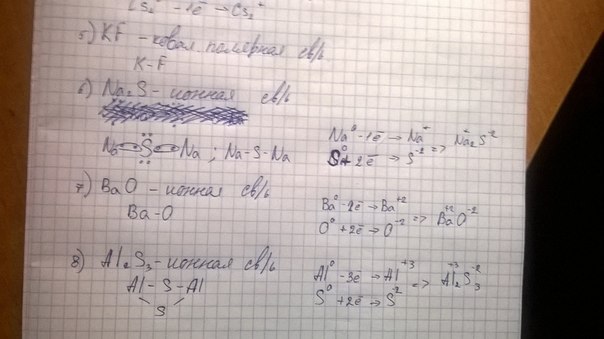 Cs₂⁰ - 1ē → Cs₂⁺
5) KF - ковал. полярная св/ь
K-F
6) Na₂S - ионная св/ь
Na S Na ; Na-S-Na
Na⁰ -1ē → Na⁺ => Na₂⁺S⁻²
S⁰ + 2ē → S⁻²
7) BaO - ионная св/ь
Ba-O
Ba⁰ -2ē → Ba⁺² => Ba⁺²O⁻²
O⁰ +2ē → O⁻²
8) Al₂S₃ - ионная св/ь
Al - S - Al
S
Al⁰ -3ē → Al⁺³ => Al₂⁺³S₃⁻²
S⁰ +2ē → S⁻²